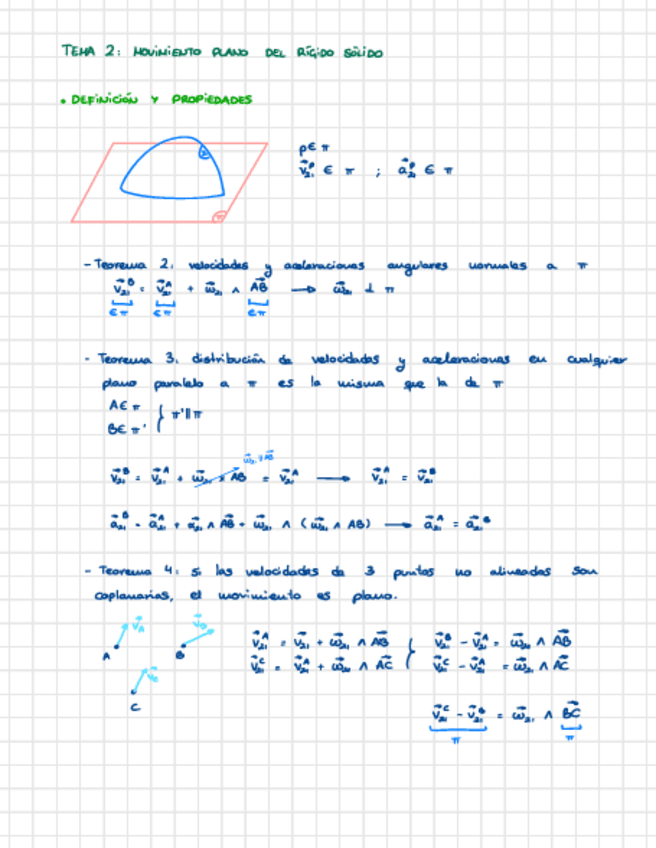 TEMA 2: MOVIMIENTO PLANO DEL RÍGIDO SÓLIDO
• DEFINICIÓN Y PROPIEDADES
p∈π
v⃗₂₁ᵖ ∈ π ; a⃗₂₁ᵖ ∈ π
2
π
- Teorema 2: velocidades y aceleraciones angulares normales a π
v⃗₂₁ᴮ = v⃗₂₁ᴬ + ω⃗₂₁ ∧ AB⃗ → ω⃗₂₁ ⊥ π
∈π ∈π ∈π
- Teorema 3: distribución de velocidades y aceleraciones en cualquier
plano paralelo a π es la misma que la de π
A∈π
B∈π' } π'∥π
ω⃗₂₁∥AB⃗
v⃗₂₁ᴮ = v⃗₂₁ᴬ + ω⃗₂₁ ∧ AB = v⃗₂₁ᴬ → v⃗₂₁ᴬ = v⃗₂₁ᴮ
a⃗₂₁ᴮ = a⃗₂₁ᴬ + α⃗₂₁ ∧ AB⃗ + ω⃗₂₁ ∧ (ω⃗₂₁ ∧ AB) → a⃗₂₁ᴬ = a⃗₂₁ᴮ
- Teorema 4: si las velocidades de 3 puntos no alineados son
coplanarias, el movimiento es plano.
A v⃗_A B C
v⃗₂₁ᴬ = v⃗₂₁ + ω⃗₂₁ ∧ AB⃗ } v⃗₂₁ᴮ - v⃗₂₁ᴬ = ω⃗₂₁ ∧ AB⃗
v⃗₂₁ᶜ = v⃗₂₁ᴬ + ω⃗₂₁ ∧ AC⃗ v⃗₂₁ᶜ - v⃗₂₁ᴬ = ω⃗₂₁ ∧ AC⃗
v⃗₂₁ᶜ - v⃗₂₁ᴮ = ω⃗₂₁ ∧ BC⃗
π π